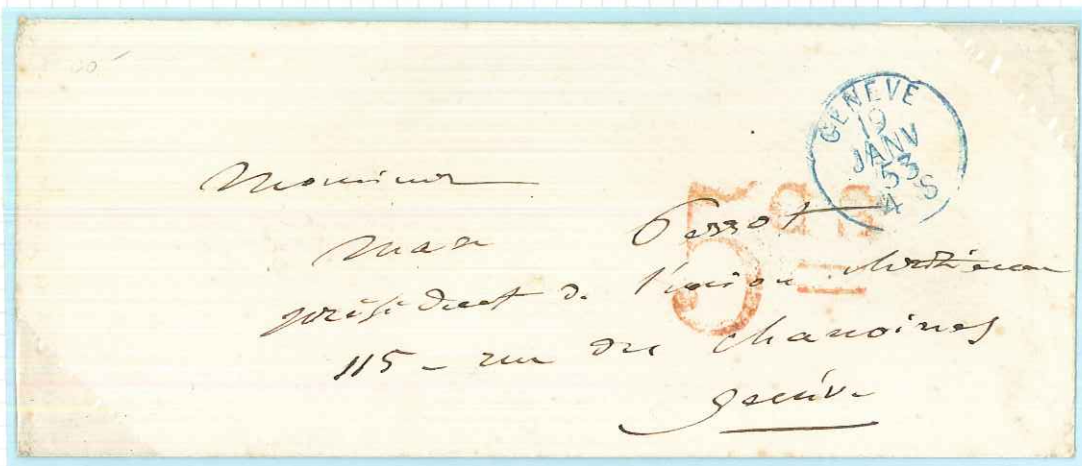 GENEVE
19
JANV
53
4 S
5 cs
Monsieur
Max Perrot
président de l'union chrétienne
115 - rue des chanoines
Genève